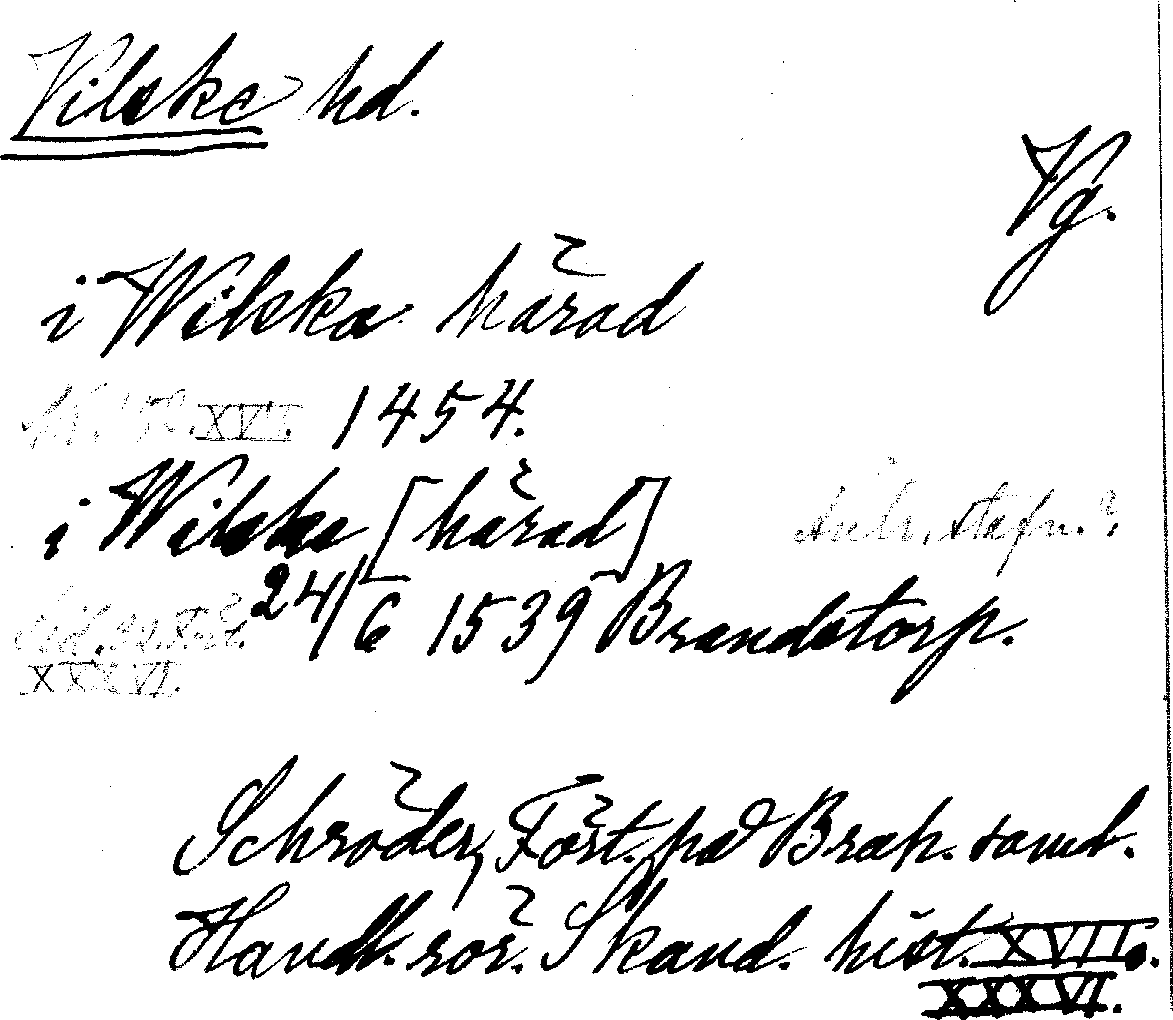 Vilske hd.
Vg.
i Wilska härad
XVII. 1454.
i Wilska [härad]
24/6 1539 Brandstorp.
XXXVI.
Schröder, Fört. på Brah. saml.
Handl. rör. Skand. hist. XVII o.
XXXVI.